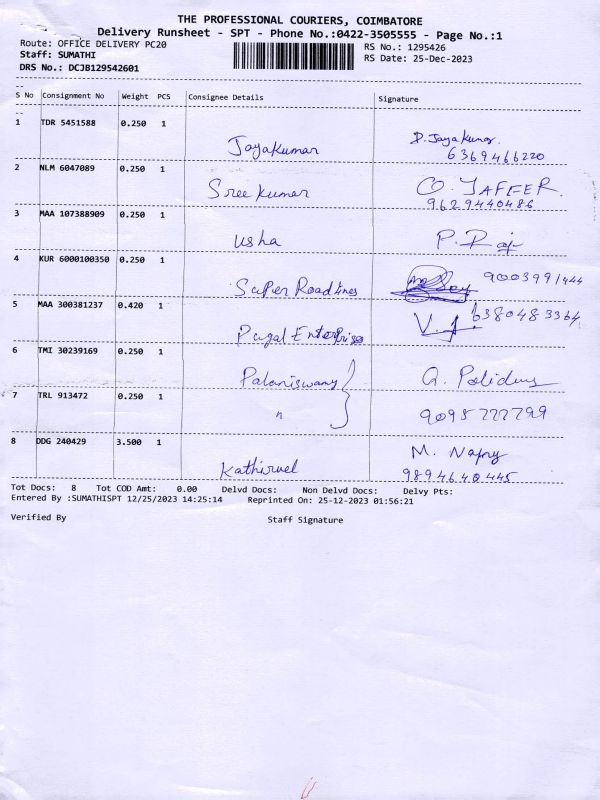 THE PROFESSIONAL COURIERS, COIMBATORE
Delivery Runsheet - SPT - Phone No.:0422-3505555 - Page No.:1
Route: OFFICE DELIVERY PC20
RS No.: 1295426
Staff: SUMATHI
RS Date: 25-Dec-2023
DRS No.: DCJB129542601
S No Consignment No Weight PCS Consignee Details Signature
1 TDR 5451588 0.250 1
Jayakumar D. Jayakumar
6369466220
2 NLM 6047089 0.250 1
Sree kumar O. JAFEER.
9629440486
3 MAA 107388909 0.250 1
usha P. Raj
4 KUR 6000100350 0.250 1
Super Roadlines 9003991444
5 MAA 300381237 0.420 1
Pugal Enterprises 6380483364
6 TMI 30239169 0.250 1
Palaniswamy
7 TRL 913472 0.250 1
" 9095777799
8 DDG 240429 3.500 1
Kathirvel M.
9894640445
Tot Docs: 8 Tot COD Amt: 0.00 Delvd Docs: Non Delvd Docs: Delvy Pts:
Entered By :SUMATHISPT 12/25/2023 14:25:14 Reprinted On: 25-12-2023 01:56:21
Verified By Staff Signature